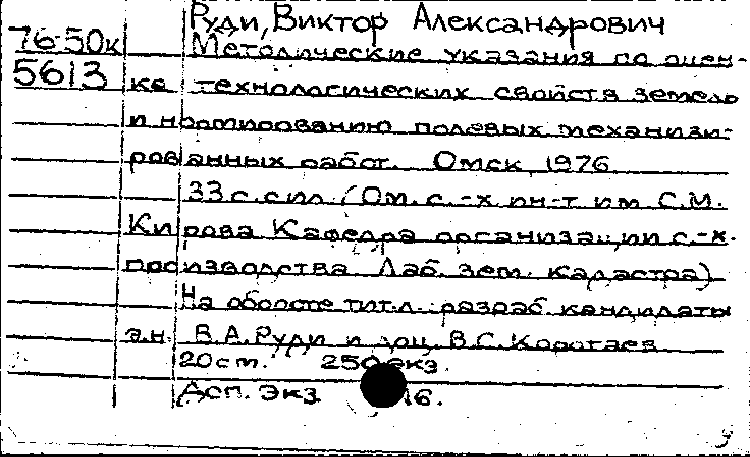 Руди, Виктор Александрович
76-50к Методические указания по оцен-
5613 ке технологических свойств земель
и нормированию полевых механизи-
рованных работ. Омск, 1976.
33 с. с ил. (Ом. с.-х. ин-т им. С.М.
Кирова. Кафедра организации с.-х.
производства. Лаб. зем. кадастра)
На обороте тит. л.: разраб. кандидаты
э.н. В.А. Руди и доц. В.С. Коротаев
20 см. 250 экз.
экз. 16.